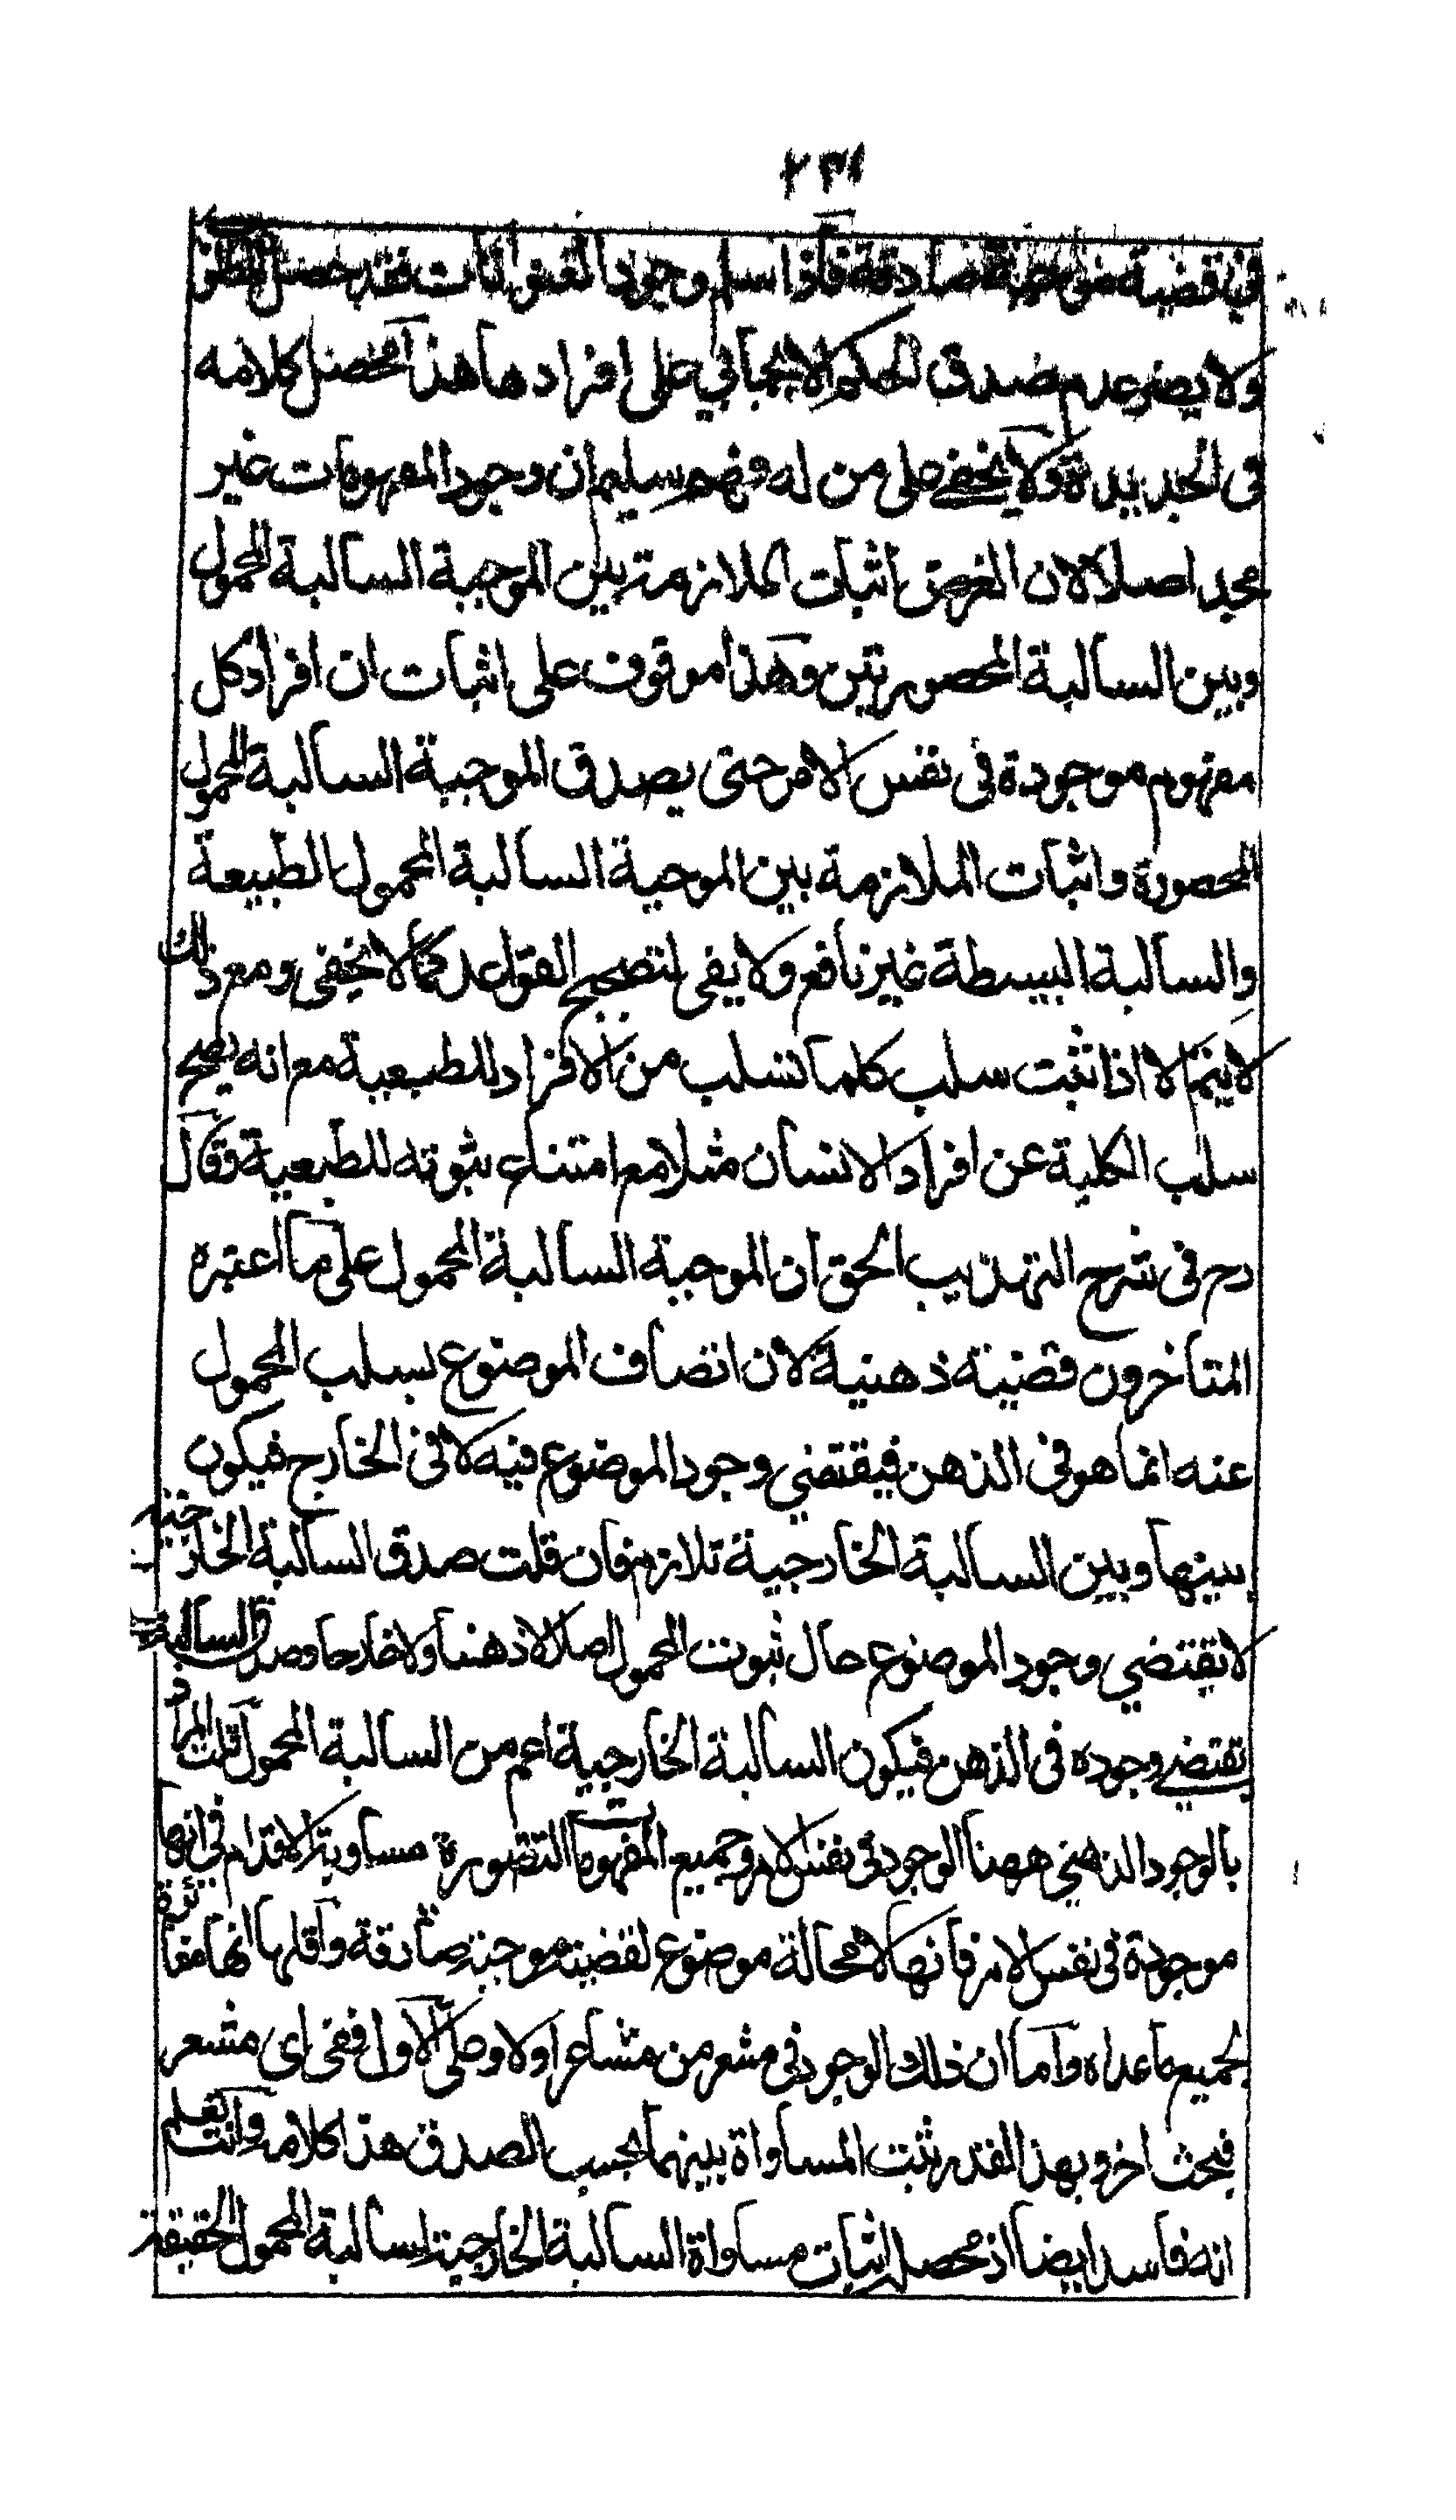 ٢٣١
في قضية موجبة صادقة فاذا سلم وجود العنوانات فقد حصل المطلوب
ولا يضر عدم صدق الحكم الايجابي على افرادها هذا محصل كلامه
في الجديدة ولا يخفى على من له فهم سليم ان وجود المفهومات غير
مجد اصلا لان الغرض اثبات الملازمة بين الموجبة السالبة المحمول
وبين السالبة المحصورتين وهذا موقوف على اثبات ان افراد كل
مفهوم موجودة في نفس الامر حتى يصدق الموجبة السالبة المحمول
المحصورة واثبات الملازمة بين الموجبة السالبة المحمول الطبيعة
والسالبة البسيطة غير نافع ولا يفي لتصحيح القواعد كما لا يخفى ومع ذلك
لا يتم الا اذا ثبت سلب كلما تسلب من الافراد للطبعية مع انه يصح
سلب الكلية عن افراد الانسان مثلا مع امتناع ثبوته للطبعية وقال
رح في شرح التهذيب الحق ان الموجبة السالبة المحمول على ما اعتبره
المتأخرون قضية ذهنية لان اتصاف الموضوع بسلب المحمول
عنه انما هو في الذهن فيقتضي وجود الموضوع فيه لا في الخارج فيكون
بينها وبين السالبة الخارجية تلازم فان قلت صدق السالبة الخارجية
لا تقتضي وجود الموضوع حال ثبوت المحمول اصلا لا ذهنا ولا خارجا وصدق السالبة
تقتضي وجوده في الذهن فيكون السالبة الخارجية اعم من السالبة المحمول قلت المراد
بالوجود الذهني ههنا الوجود في نفس الامر وجميع المفهومات التصورية متساوية الاقدام في انها
موجودة في نفس الامر فانها لا محالة موضوع لقضية موجبة صادقة واقلها انها مغايرة
لجميع ما عداه واما ان ذلك الوجود في مشعر من مشاعر اولا وعلى الاول ففي اي مشعر
فبحث اخر وبهذا القدر ثبت المساواة بينهما بحسب الصدق هذا كلامه وانت تعلم
انه فاسد ايضا اذ محصله اثبات مساواة السالبة الخارجية لسالبة المحمول الحقيقة